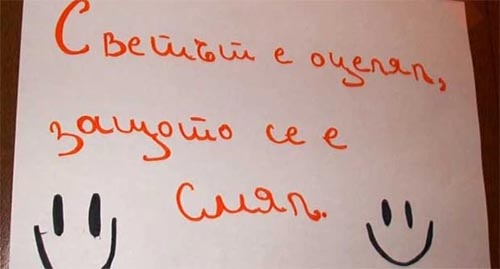 Светът е оцелял,
защото се е
смял.